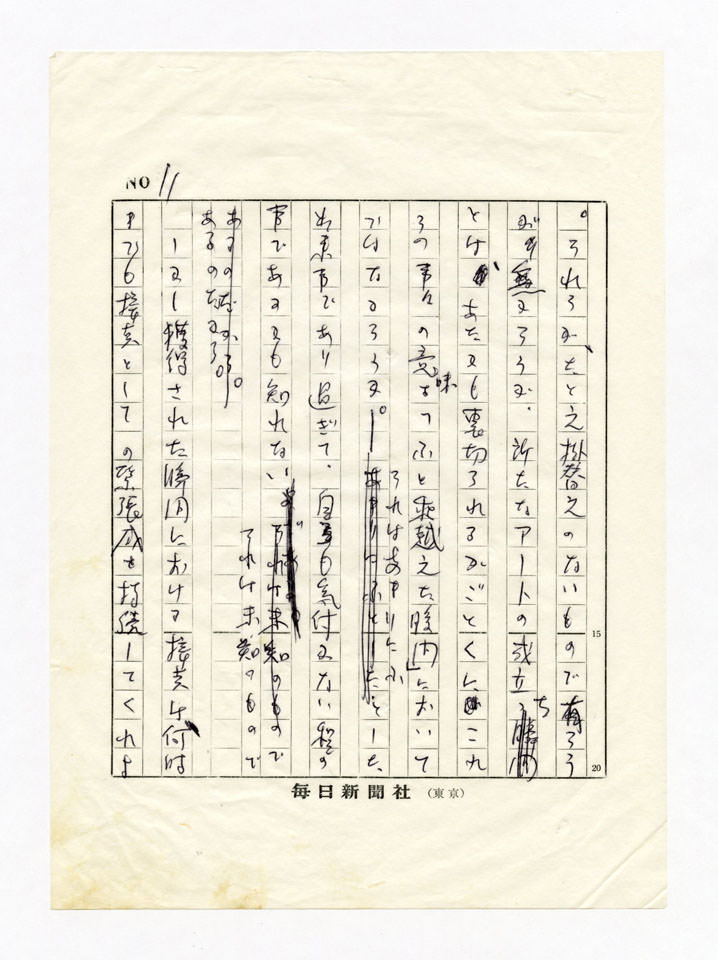 NO 11
。それらが、たとえ掛替えのないもので有ろう
が無かろうが、新たなアートの成立ち
とは、あたかも裏切られるがごとくにこれ
らの事々の意味をふと乗越えた瞬間」において
ではなかろうか。―それはあまりにふとした、
出来事であり過ぎて、自身も気付かない程の
事であるかも知れない
それは未知のもので
あるのだから。
あるのだろう。
しかし獲得された瞬間における接点は何時
までも接点としての緊張感を持続してくれは
15
20
毎日新聞社(東京)